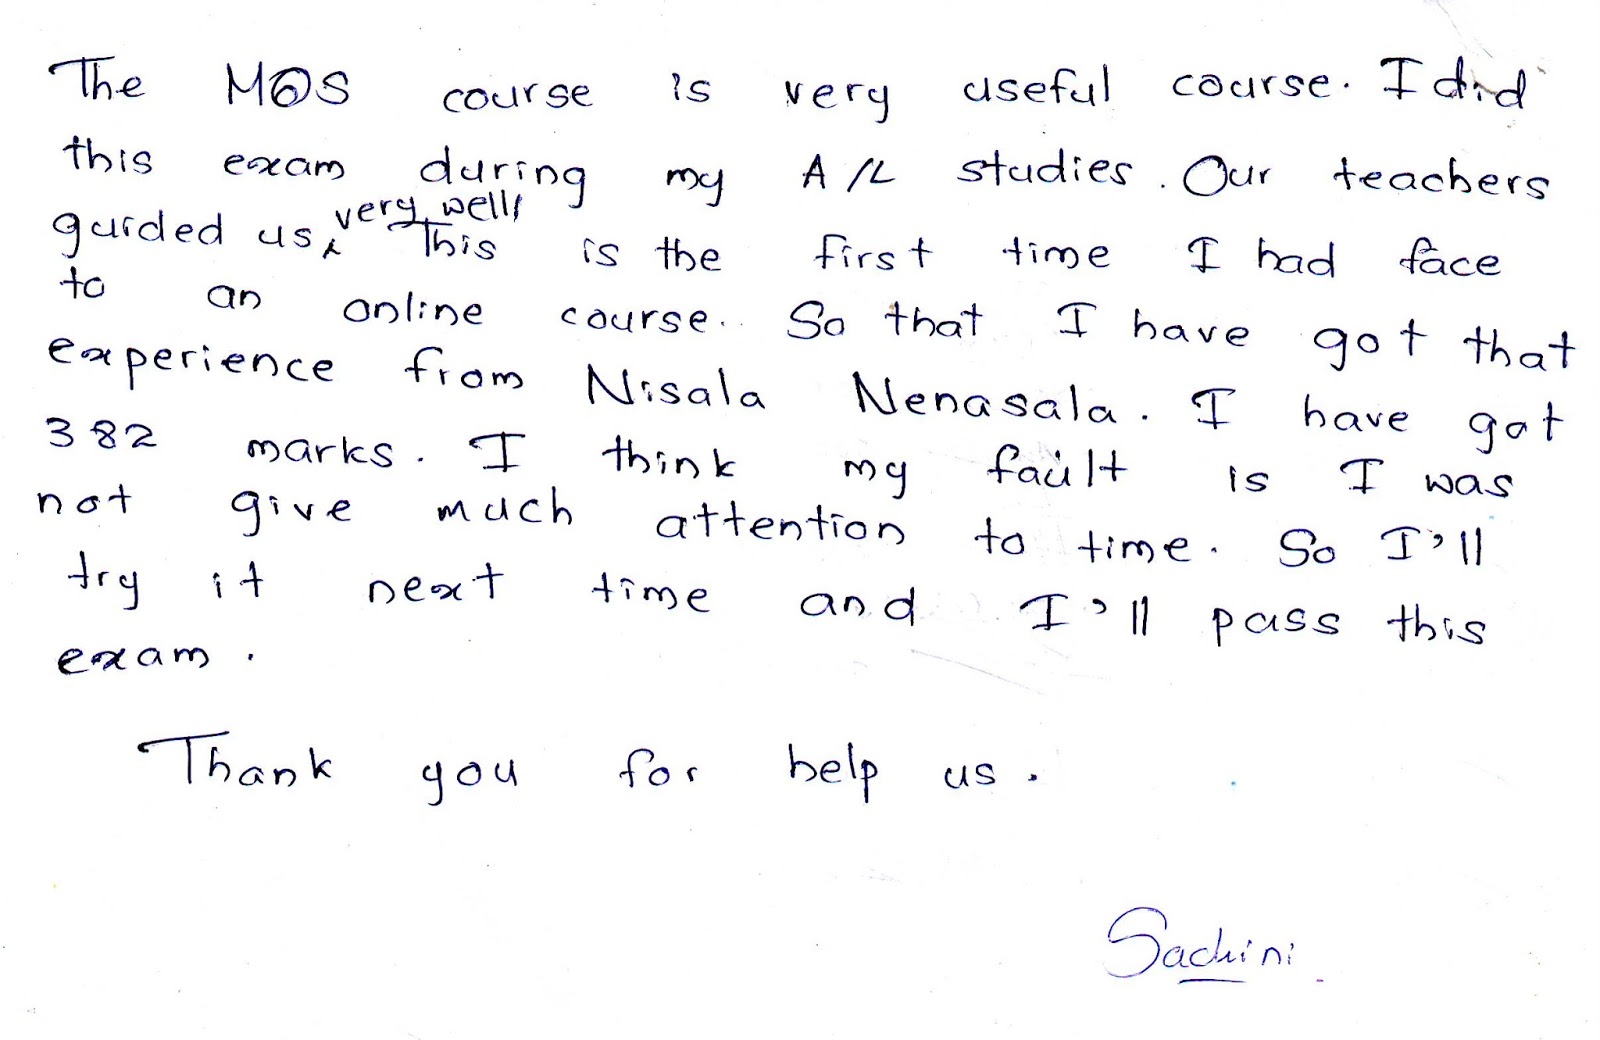 The MOS course is very useful course. I did
this exam during my A/L studies. Our teachers
guided us very well. This is the first time I had face
to an online course. So that I have got that
experience from Nisala Nenasala. I have got
382 marks. I think my fault is I was
not give much attention to time. So I'll
try it next time and I'll pass this
exam.
Thank you for help us.
Sachini